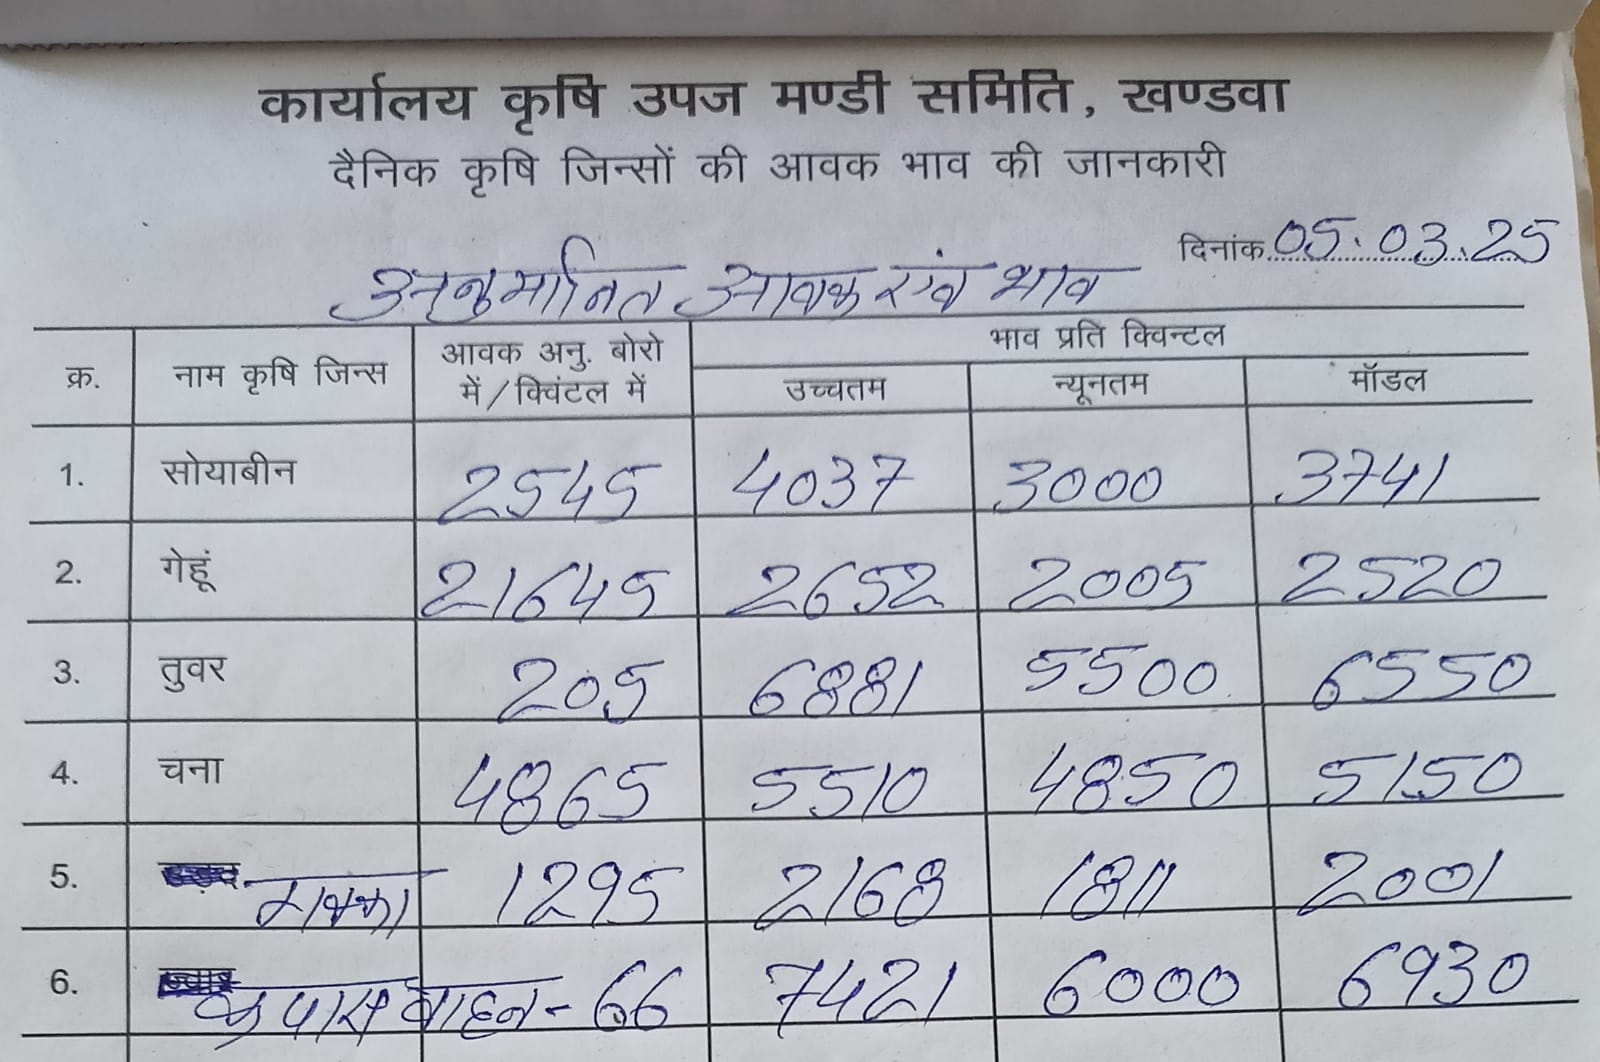 कार्यालय कृषि उपज मण्डी समिति, खण्डवा
दैनिक कृषि जिन्सों की आवक भाव की जानकारी
दिनांक 05.03.25
अनुमानित आवक एवं भाव
क्र. नाम कृषि जिन्स आवक अनु. बोरो में/क्विंटल में भाव प्रति क्विन्टल
उच्चतम न्यूनतम मॉडल
1. सोयाबीन 2545 4037 3000 3741
2. गेहूं 21645 2652 2005 2520
3. तुवर 205 6881 5500 6550
4. चना 4865 5510 4850 5150
5. मक्का 1295 2168 1811 2001
6. कपास वाहन - 66 7421 6000 6930